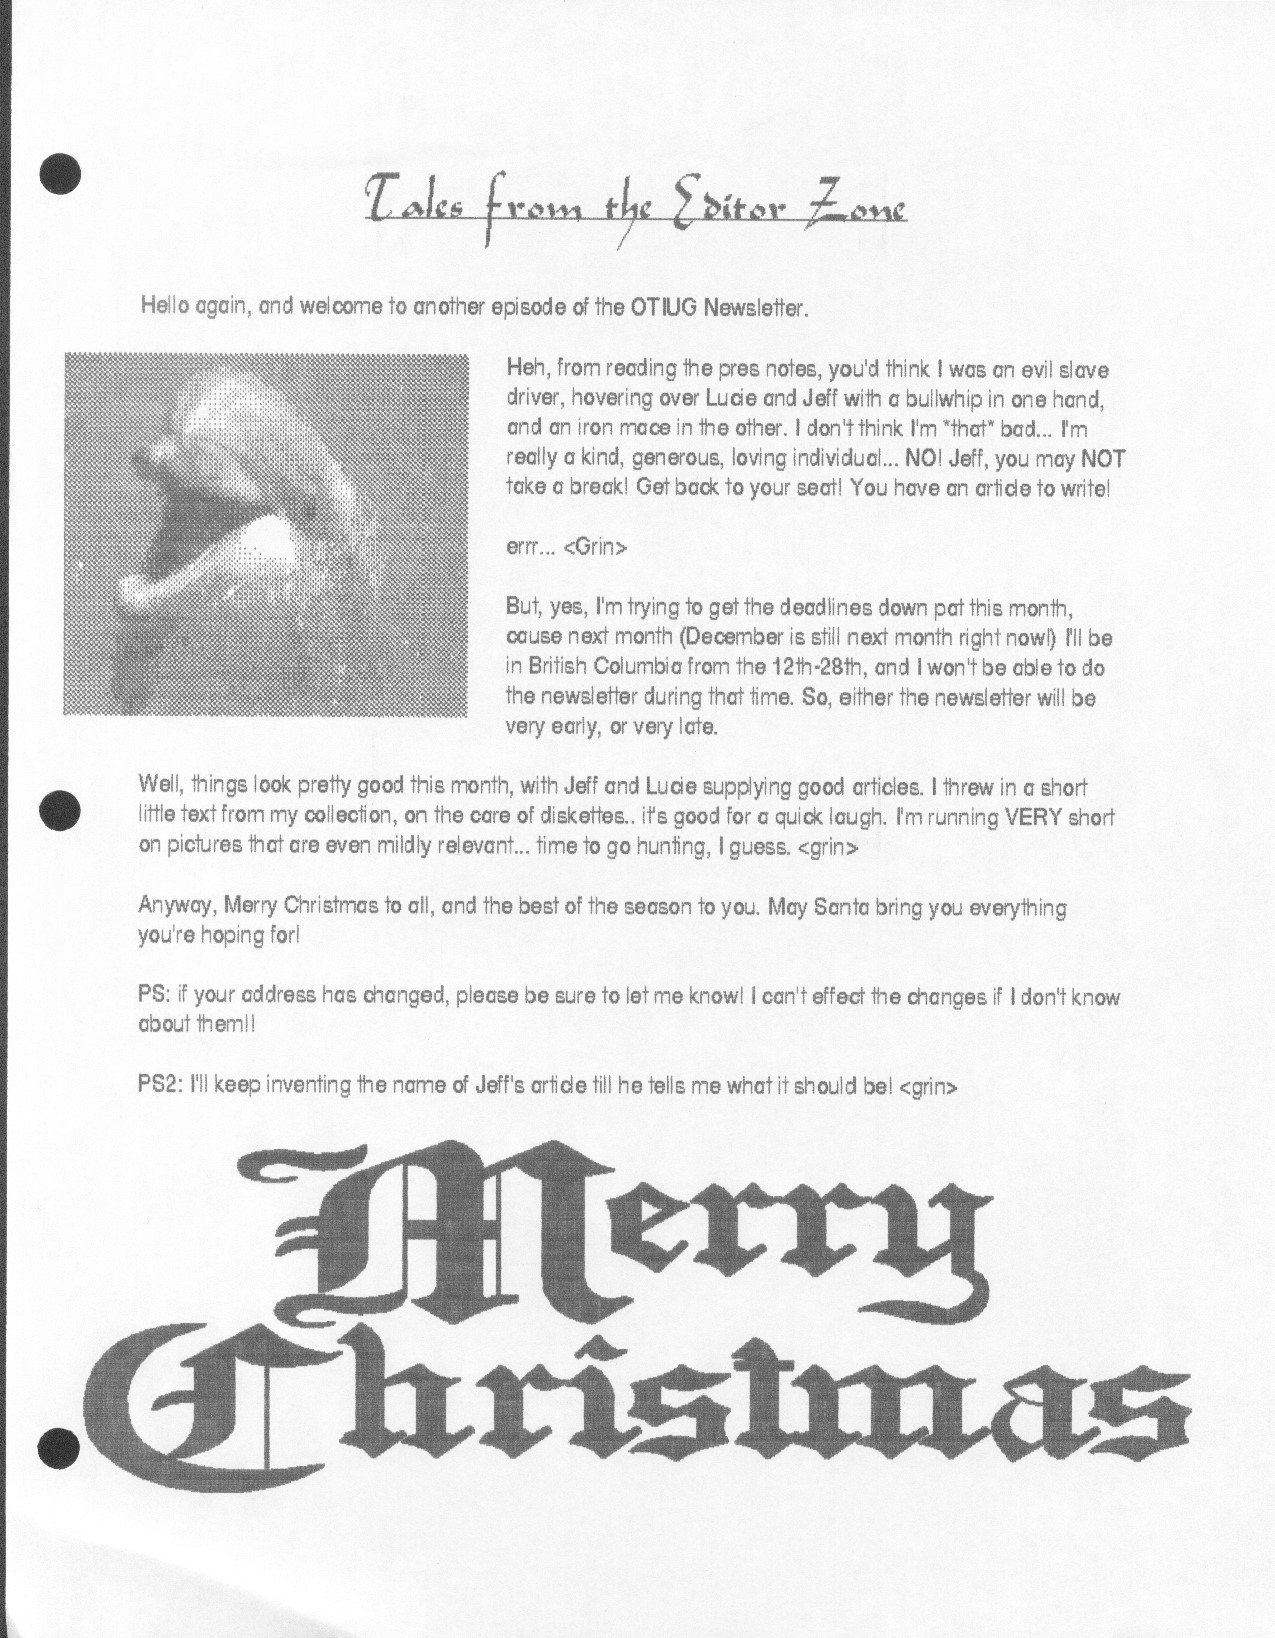 Tales from the Editor Zone
Hello again, and welcome to another episode of the OTIUG Newsletter.
Heh, from reading the pres notes, you'd think I was an evil slave
driver, hovering over Lucie and Jeff with a bullwhip in one hand,
and an iron mace in the other. I don't think I'm *that* bad... I'm
really a kind, generous, loving individual... NO! Jeff, you may NOT
take a break! Get back to your seat! You have an article to write!
errr... <Grin>
But, yes, I'm trying to get the deadlines down pat this month,
cause next month (December is still next month right now!) I'll be
in British Columbia from the 12th-28th, and I won't be able to do
the newsletter during that time. So, either the newsletter will be
very early, or very late.
Well, things look pretty good this month, with Jeff and Lucie supplying good articles. I threw in a short
little text from my collection, on the care of diskettes.. it's good for a quick laugh. I'm running VERY short
on pictures that are even mildly relevant... time to go hunting, I guess. <grin>
Anyway, Merry Christmas to all, and the best of the season to you. May Santa bring you everything
you're hoping for!
PS: if your address has changed, please be sure to let me know! I can't effect the changes if I don't know
about them!!
PS2: I'll keep inventing the name of Jeff's article till he tells me what it should be! <grin>
Merry
Christmas